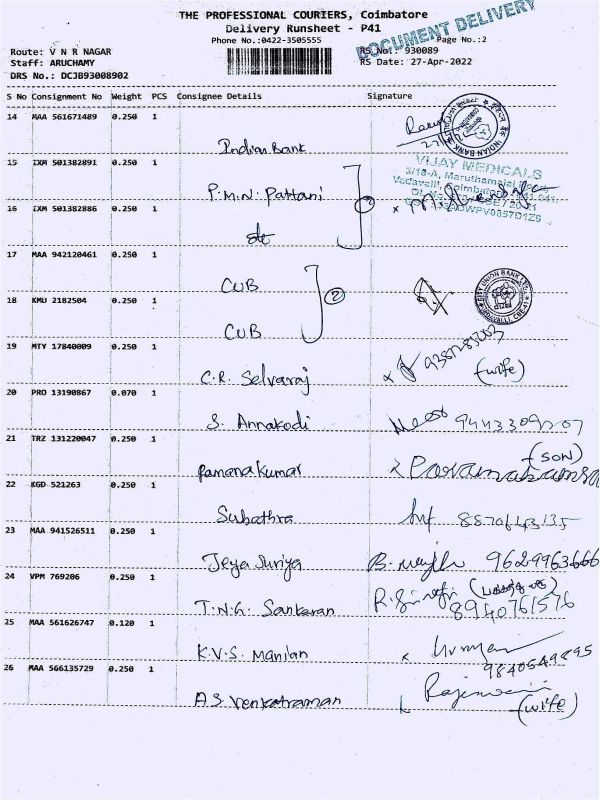 THE PROFESSIONAL COURIERS, Coimbatore
Delivery Runsheet - P41
DOCUMENT DELIVERY
Phone No.:0422-3505555 Page No.:2
Route: V N R NAGAR RS No.: 930089
Staff: ARUCHAMY RS Date: 27-Apr-2022
DRS No.: DCJB93008902
S No Consignment No Weight PCS Consignee Details Signature
14 MAA 561671489 0.250 1
Indian Bank
INDIAN BANK
15 IXM 501382891 0.250 1
P.M.N. Pattani
VIJAY MEDICALS
3/18-A, Maruthamalai Road,
Vadavalli, Coimbatore
16 IXM 501382886 0.250 1
17 MAA 942120461 0.250 1
CUB
2
CITY UNION BANK LTD.
18 KMU 2182504 0.250 1
CUB
19 MTY 17840009 0.250 1
C.R. Selvaraj x (wife)
20 PRO 13190867 0.070 1
S. Annakodi
21 TRZ 131220047 0.250 1
(SON)
Ramanakumar x
22 KGD 521263 0.250 1
Subathra
23 MAA 941526511 0.250 1
Jeya Suriya 9629963666
24 VPM 769206 0.250 1
T.N.G. Sankaran 8940761576
25 MAA 561626747 0.120 1
K.V.S. Manian x
9840549895
26 MAA 566135729 0.250 1
A.S. Venkatraman (wife)